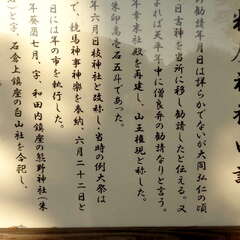 勧請年月日は詳らかでないが大同弘仁の頃
日吉神を当所に移し勧請したと伝える。又
よれば天平年中に僧良弁の勧請なりと言う。
年幸来社殿を再建し、山王権現と称した。
朱印高壱石五斗であった。
年六月日枝神社と改称し当時の例大祭は
で、競馬神事神楽を奉納、六月二十二日と
日に年の市を執行した。
年癸酉七月、字、和田内鎮座の熊野神社(朱
と字、石倉上鎮座の白山社を合祀し、